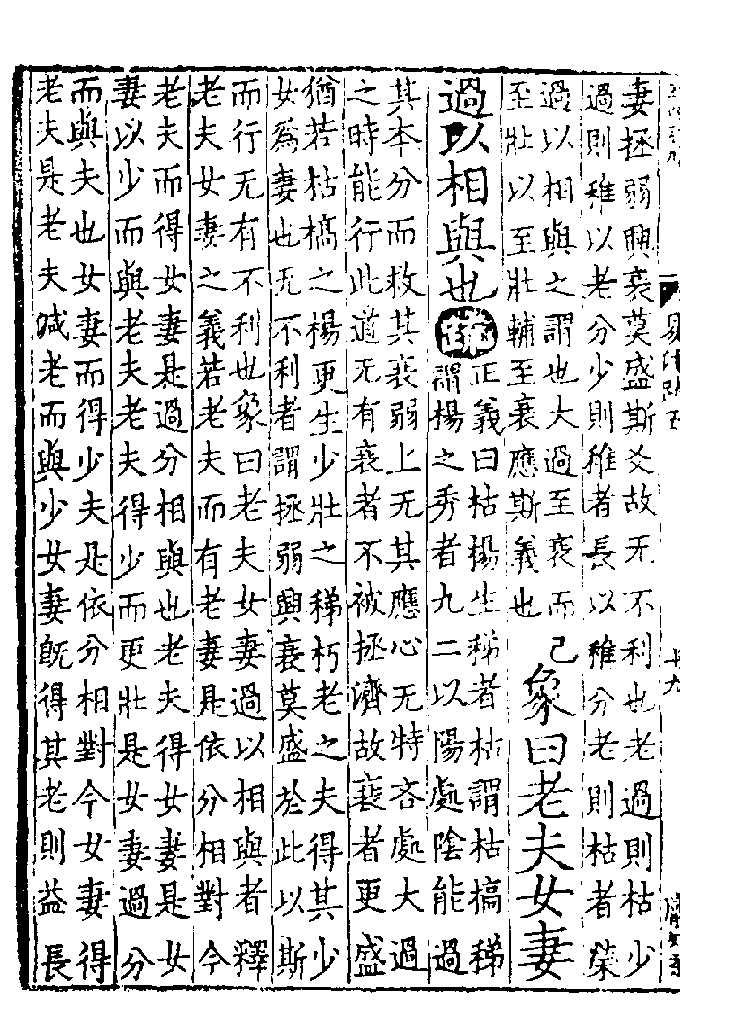 妻拯弱興衰莫盛斯爻故无不利也老過則枯少
過則稚以老分少則稚者長以稚分老則枯者榮
過以相與之謂也大過至衰而己
至壯以至壯輔至衰應斯義也
象曰老夫女妻
過以相與也
疏
正義曰枯楊生稊者枯謂枯槁稊
謂楊之秀者九二以陽處陰能過
其本分而救其衰弱上无其應心无特吝處大過
之時能行此道无有衰者不被拯濟故衰者更盛
猶若枯槁之楊更生少壯之稊朽老之夫得其少
女爲妻也无不利者謂拯弱興衰莫盛於此以斯
而行无有不利也象曰老夫女妻過以相與者釋
老夫女妻之義若老夫而有老妻是依分相對今
老夫而得女妻是過分相與也老夫得女妻是女
妻以少而與老夫老夫得少而更壯是女妻過分
而與夫也女妻而得少夫是依分相對今女妻得
老夫是老夫減老而與少女妻旣得其老則益長
易注疏五
十九